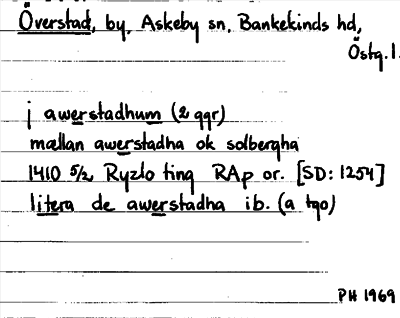 Överstad, by, Askeby sn, Bankekinds hd,
Östg. l.
j awerstadhum (2 ggr)
mællan awerstadha ok solbergha
1410 5/2 Ryzlo ting RAp or. [SD: 1254]
litera de awerstadha ib. (a tgo)
PH 1969